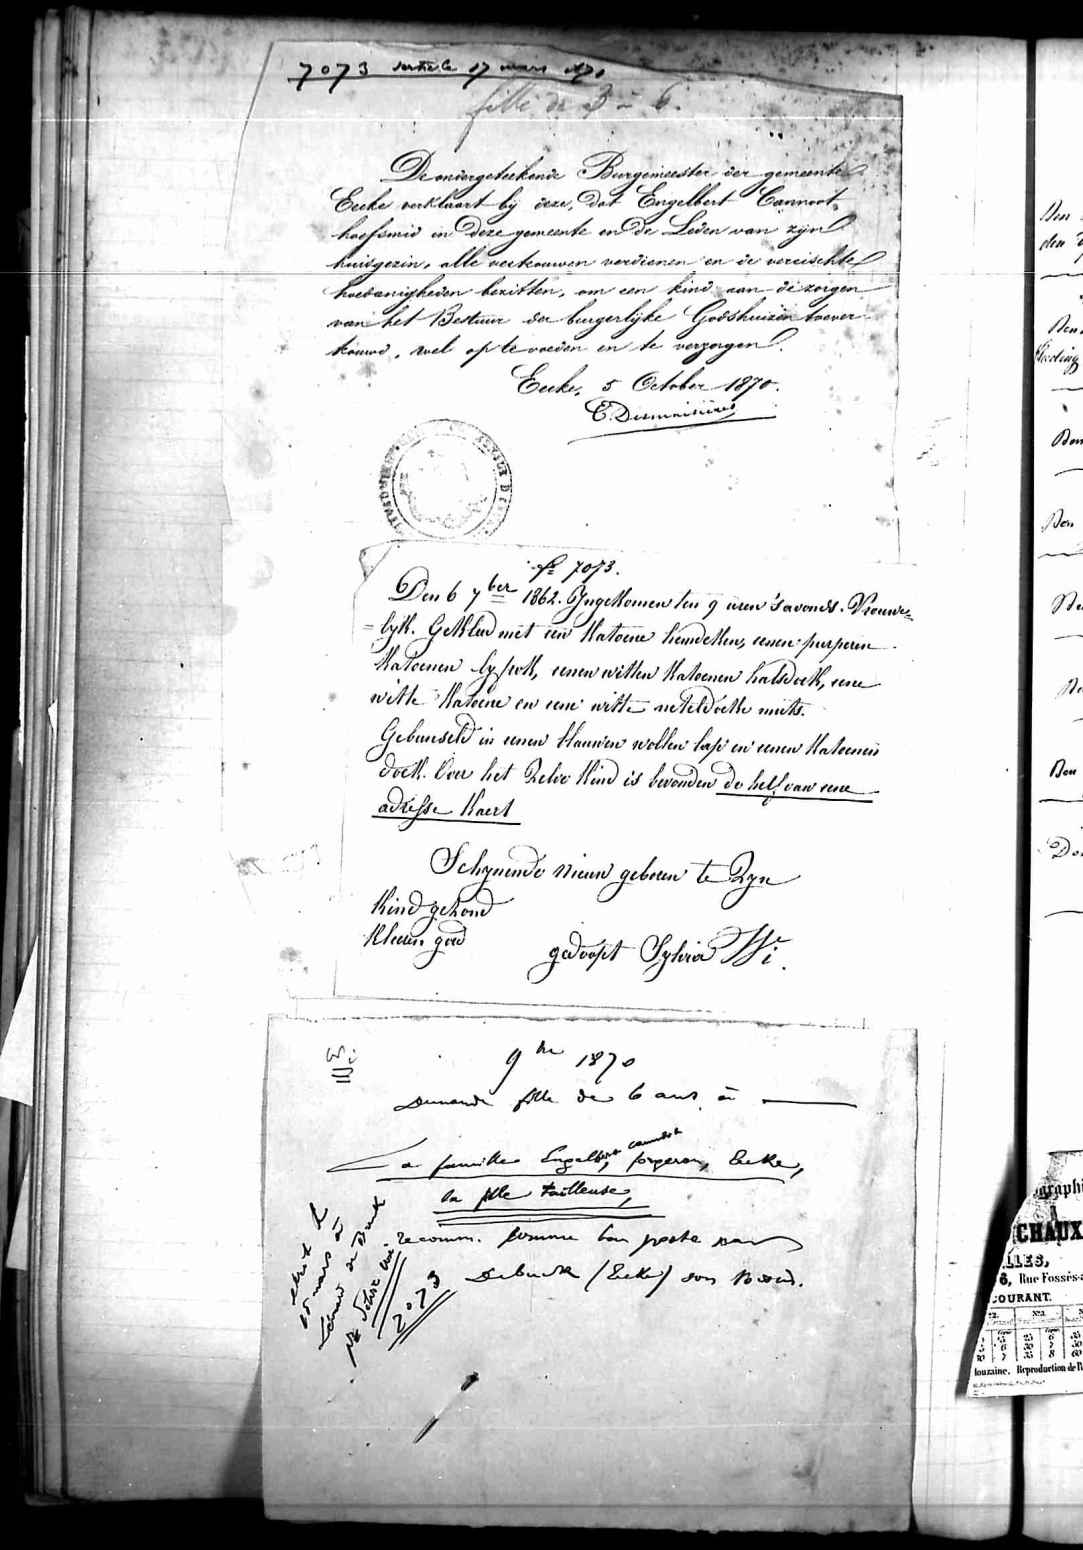 7073 sortie le 17 mars 1871
fille de 3 à 6.
De ondergeteekende Burgemeester der gemeente
Eecke verklaart bij deze, dat Engelbert Cannoot
hoefsmid in deze gemeente en de Leden van zijn
huisgezin, alle vertrouwen verdienen en de vereischte
hoedanigheden bezitten, om een kind aan de zorgen
van het Bestuur der burgerlijke Godshuizen toever-
trouwd, wel op te voeden en te verzorgen.
Eecke, 5 October 1870.
E. Desmaisières
No 7073.
Den 6 7ber 1862. Ingekomen ten 9 uren 's avonds. Vrouwe-
=lyk. Gekleed met een katoene hemdeken, eenen purperen
katoenen lyfrok, eenen witten katoenen halsdoek, eene
witte katoene en eene witte neteldoeke muts.
Gebunseld in eenen blauwen wollen lap en eenen katoenen
doek. Over het Zelve kind is bevonden de helf van eene
adresse kaert
Schynende nieuw geboren te Zyn
Kind gezond
Kleeren goed
gedoopt Sylvia Wi.
9bre 1870
Demande fille de 6 ans à
La famille Engelbert Cannoot, forgeron, Eecke,
la fille tailleuse,
recomm. comme bon poste par
Debuck (Eecke) son
15 mars à
7073
CHAUX
LLES,
6, Rue Fossés-
COURANT.
douzaine. Reproduction de